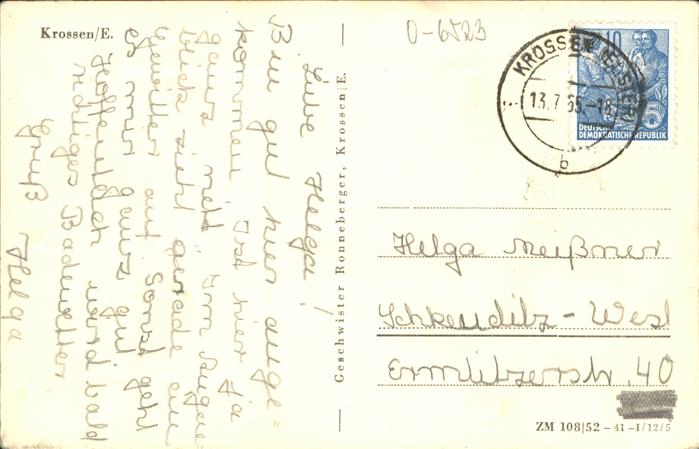 Krossen/E.
0-6523
Liebe Helga!
Bin gut hier ange=
kommen. Ist hier ja
ganz nett. Im Augen
blick zieht gerade ein
Gewitter auf. Sonst geht
es mir ganz gut.
Hoffentlich wird bald
richtiges Badewetter
Gruß Helga
Geschwister Ronneberger, Krossen/E.
KROSSEN (ELSTER)
13.7.65.-18
b
10
DEUTSCHE
DEMOKRATISCHE REPUBLIK
Helga Meißner
Schkeuditz-West
Ermlitzerstr. 40
ZM 108|52 - 41 - I/12/5